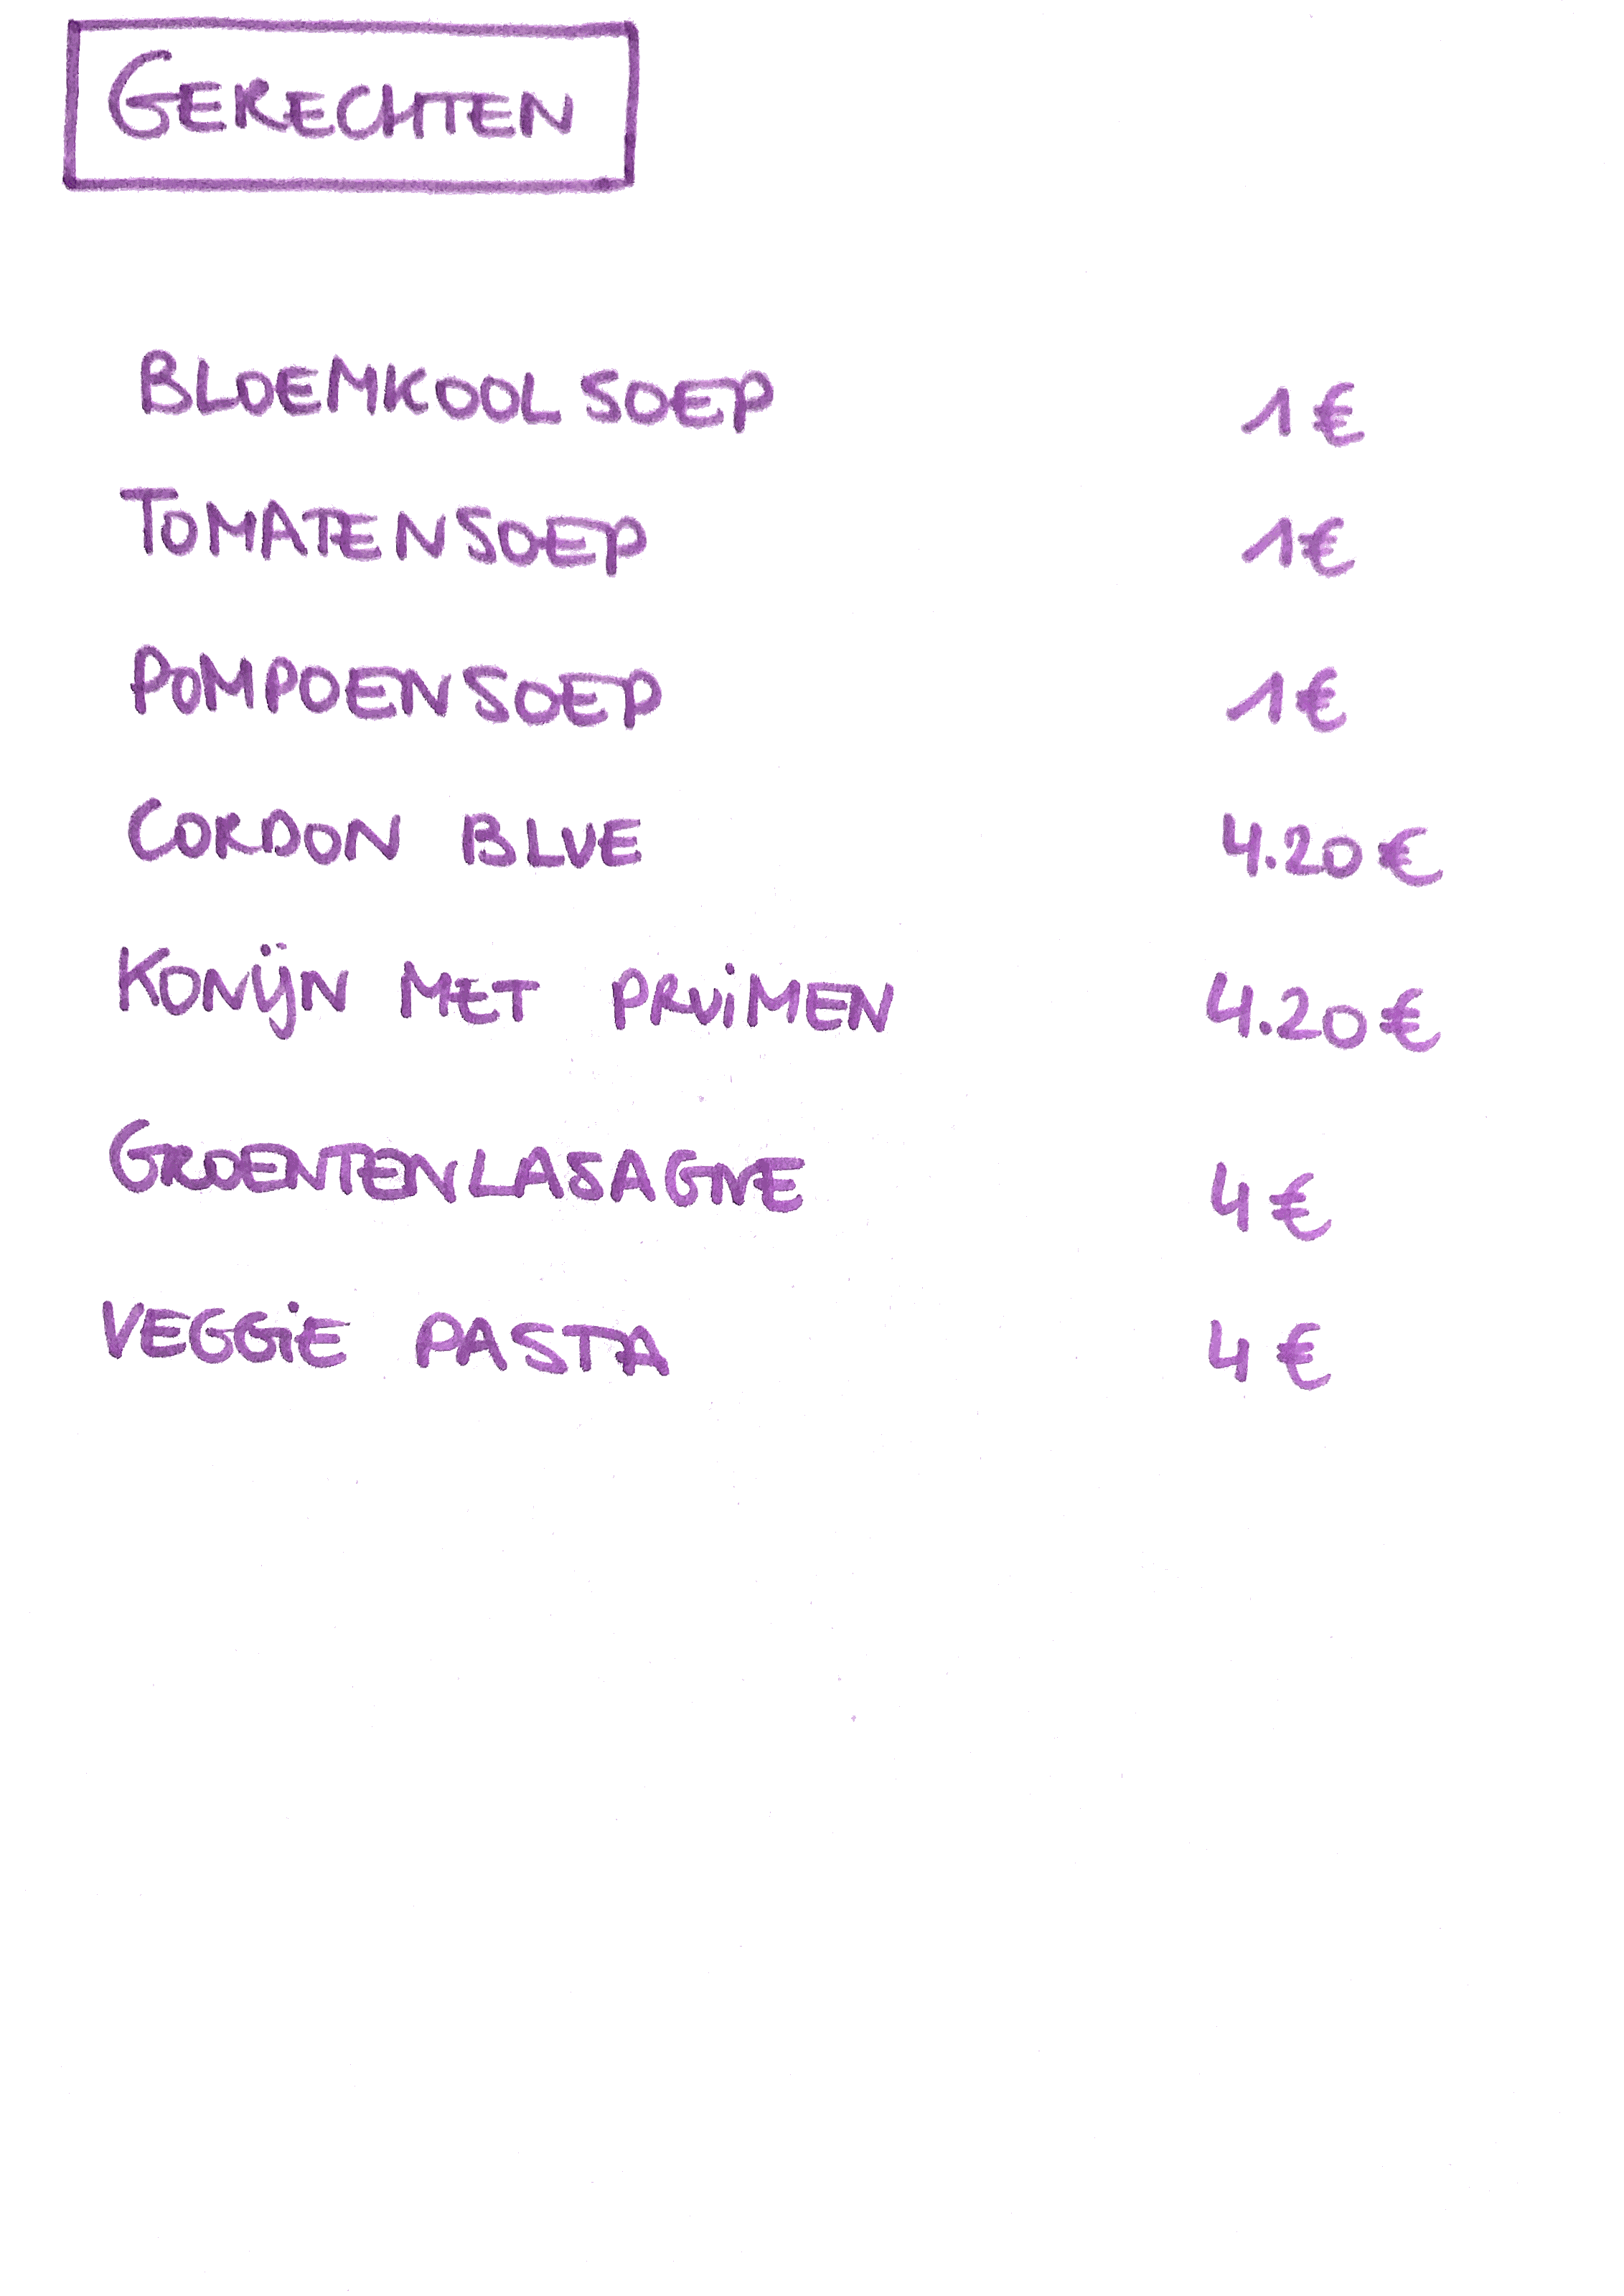 GERECHTEN
BLOEMKOOLSOEP 1€
TOMATENSOEP 1€
POMPOENSOEP 1€
CORDON BLUE 4.20€
KONIJN MET PRUIMEN 4.20€
GROENTENLASAGNE 4€
VEGGIE PASTA 4€